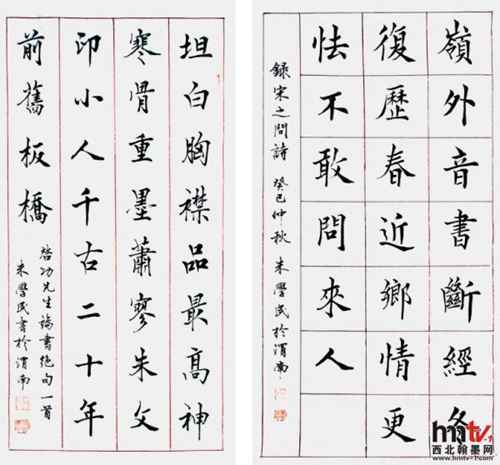 坦白胸襟品最高神
寒骨重墨蕭寥朱文
印小人千古二十年
前舊板橋
啓功先生論書絕句一首
朱學民書於渭南
嶺外音書斷經冬
復歷春近鄉情更
怯不敢問來人
録宋之問詩 癸巳仲秋 朱學民於渭南
西北翰墨网